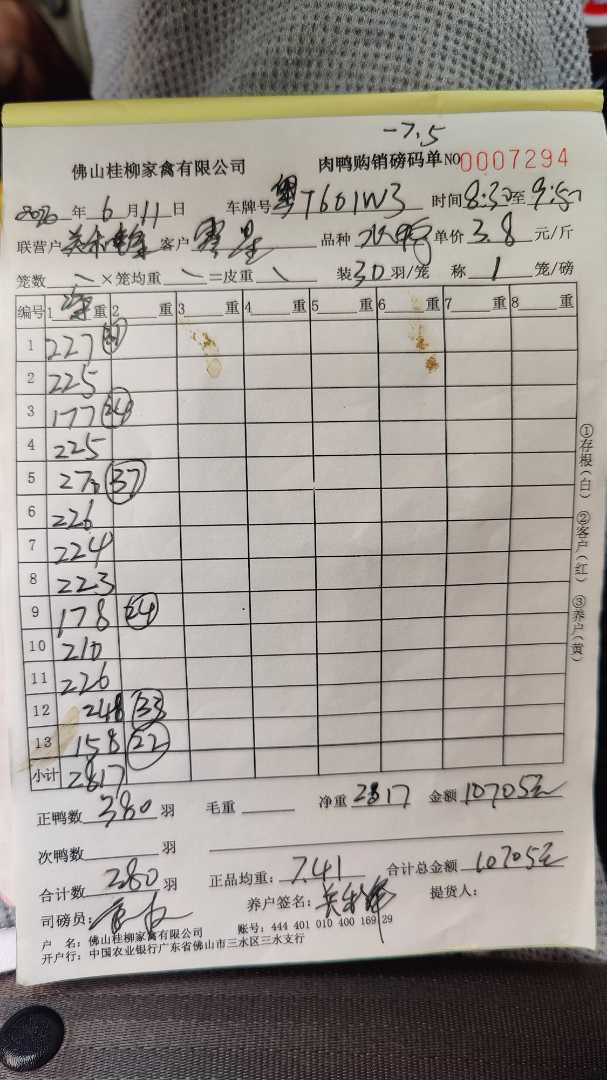 -7.5
佛山桂柳家禽有限公司 肉鸭购销磅码单 NO 0007294
2020年6月11日 车牌号 粤T601W3 时间 8:30至9:50
联营户 客户 品种 水鸭 单价 3.8 元/斤
笼数 \ ×笼均重 \ =皮重 \ 装 30 羽/笼 称 1 笼/磅
编号 1 重 2 重 3 重 4 重 5 重 6 重 7 重 8 重
1 227
2 225
3 177 24
4 225
5 270 37
6 226
7 224
8 223
9 178 24
10 210
11 226
12 248 33
13 158 22
小计 2817
正鸭数 380 羽 毛重 净重 2817 金额 10705元
次鸭数 羽
合计数 280 羽 正品均重: 7.41 合计总金额 10705元
司磅员: 养户签名: 提货人:
户 名: 佛山桂柳家禽有限公司 账号: 444 401 010 400 169 29
开户行: 中国农业银行广东省佛山市三水区三水支行
①存根(白) ②客户(红) ③养户(黄)